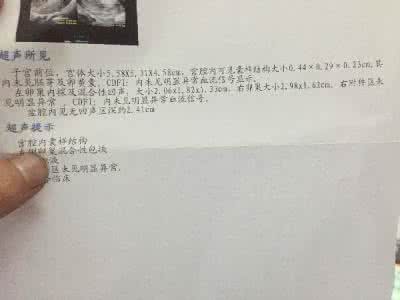 超声所见
子宫前位，宫体大小5.58X5.31X4.58cm，宫腔内可见囊样结构大小0.44×0.29×0.23cm,其
内未见胚芽及卵黄囊，CDFI：内未见明显异常血流信号显示。
左卵巢内探及混合性回声，大小2.06x1.82x1.33cm，右卵巢大小2.98x1.62cm，右附件区未
见明显异常，CDFI：内未见明显异常血流信号。
宫腔内见无回声区深约2.41cm
超声提示
宫腔内囊样结构
混合性包块
积液
区未见明显异常.
合临床